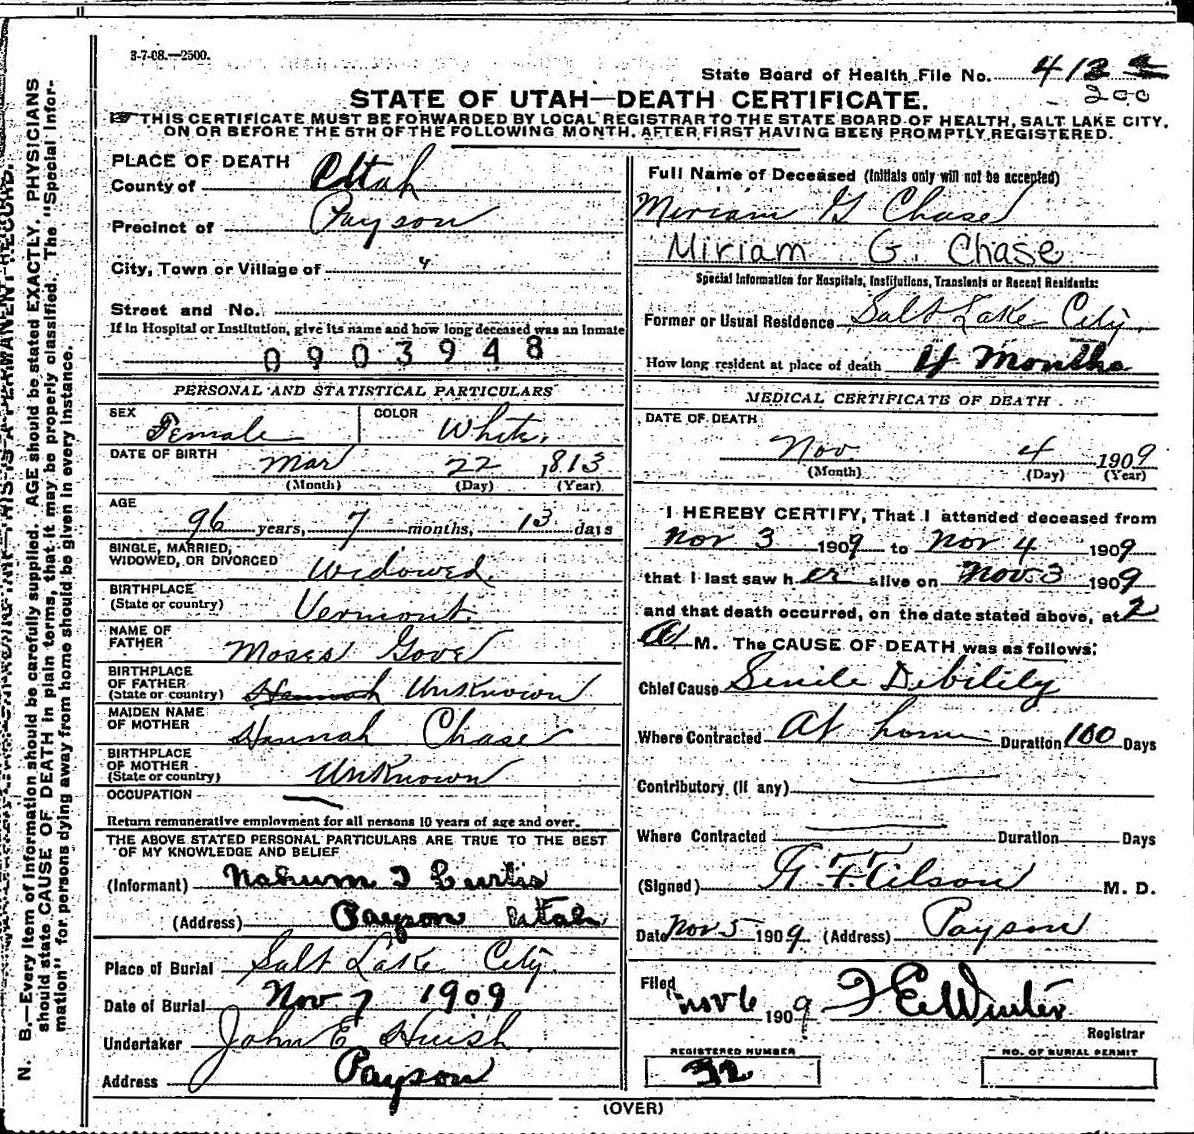 3-7-08.—2500.
State Board of Health File No. 412
200
STATE OF UTAH—DEATH CERTIFICATE.
THIS CERTIFICATE MUST BE FORWARDED BY LOCAL REGISTRAR TO THE STATE BOARD OF HEALTH, SALT LAKE CITY,
ON OR BEFORE THE 5TH OF THE FOLLOWING MONTH, AFTER FIRST HAVING BEEN PROMPTLY REGISTERED.
PLACE OF DEATH
County of Utah
Precinct of Payson
City, Town or Village of "
Street and No.
If in Hospital or Institution, give its name and how long deceased was an inmate
0903948
PERSONAL AND STATISTICAL PARTICULARS
SEX Female COLOR White.
DATE OF BIRTH Mar 22 1813
(Month) (Day) (Year)
AGE
96 years, 7 months, 13 days
SINGLE, MARRIED,
WIDOWED, OR DIVORCED Widowed.
BIRTHPLACE
(State or country) Vermont.
NAME OF
FATHER Moses Gove
BIRTHPLACE
OF FATHER
(State or country) Hannah Unknown
MAIDEN NAME
OF MOTHER Hannah Chase
BIRTHPLACE
OF MOTHER
(State or country) Unknown
OCCUPATION
Return remunerative employment for all persons 10 years of age and over.
THE ABOVE STATED PERSONAL PARTICULARS ARE TRUE TO THE BEST
OF MY KNOWLEDGE AND BELIEF
(Informant) Nahum T Curtis
(Address) Payson Utah
Place of Burial Salt Lake City.
Date of Burial Nov 7 1909
Undertaker John E Huish
Address Payson
Full Name of Deceased (Initials only will not be accepted)
Miriam G Chase
Miriam G. Chase
Special Information for Hospitals, Institutions, Transients or Recent Residents:
Former or Usual Residence Salt Lake City.
How long resident at place of death 4 Months
MEDICAL CERTIFICATE OF DEATH
DATE OF DEATH
Nov 4 1909
(Month) (Day) (Year)
I HEREBY CERTIFY, That I attended deceased from
Nov 3 1909 to Nov 4 1909
that I last saw her alive on Nov 3 1909
and that death occurred, on the date stated above, at 2
A M. The CAUSE OF DEATH was as follows:
Chief Cause Senile Debility
Where Contracted At home Duration 100 Days
Contributory (if any)
Where Contracted Duration Days
(Signed) Tilson M. D.
Date Nov 5 1909 (Address) Payson
Filed Nov 6 1909 Winter
Registrar
REGISTERED NUMBER
32
NO. OF BURIAL PERMIT
(OVER)
N. B.—Every item of information should be carefully supplied. AGE should be stated EXACTLY. PHYSICIANS
should state CAUSE OF DEATH in plain terms, that it may be properly classified. The "Special Infor-
mation" for persons dying away from home should be given in every instance.